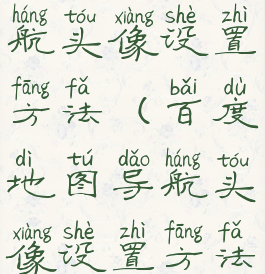 háng tóu xiàng shè zhì
航头像设置
fāng fǎ bǎi dù
方法（百度
dì tú dǎo háng tóu
地图导航头
xiàng shè zhì fāng fǎ
像设置方法